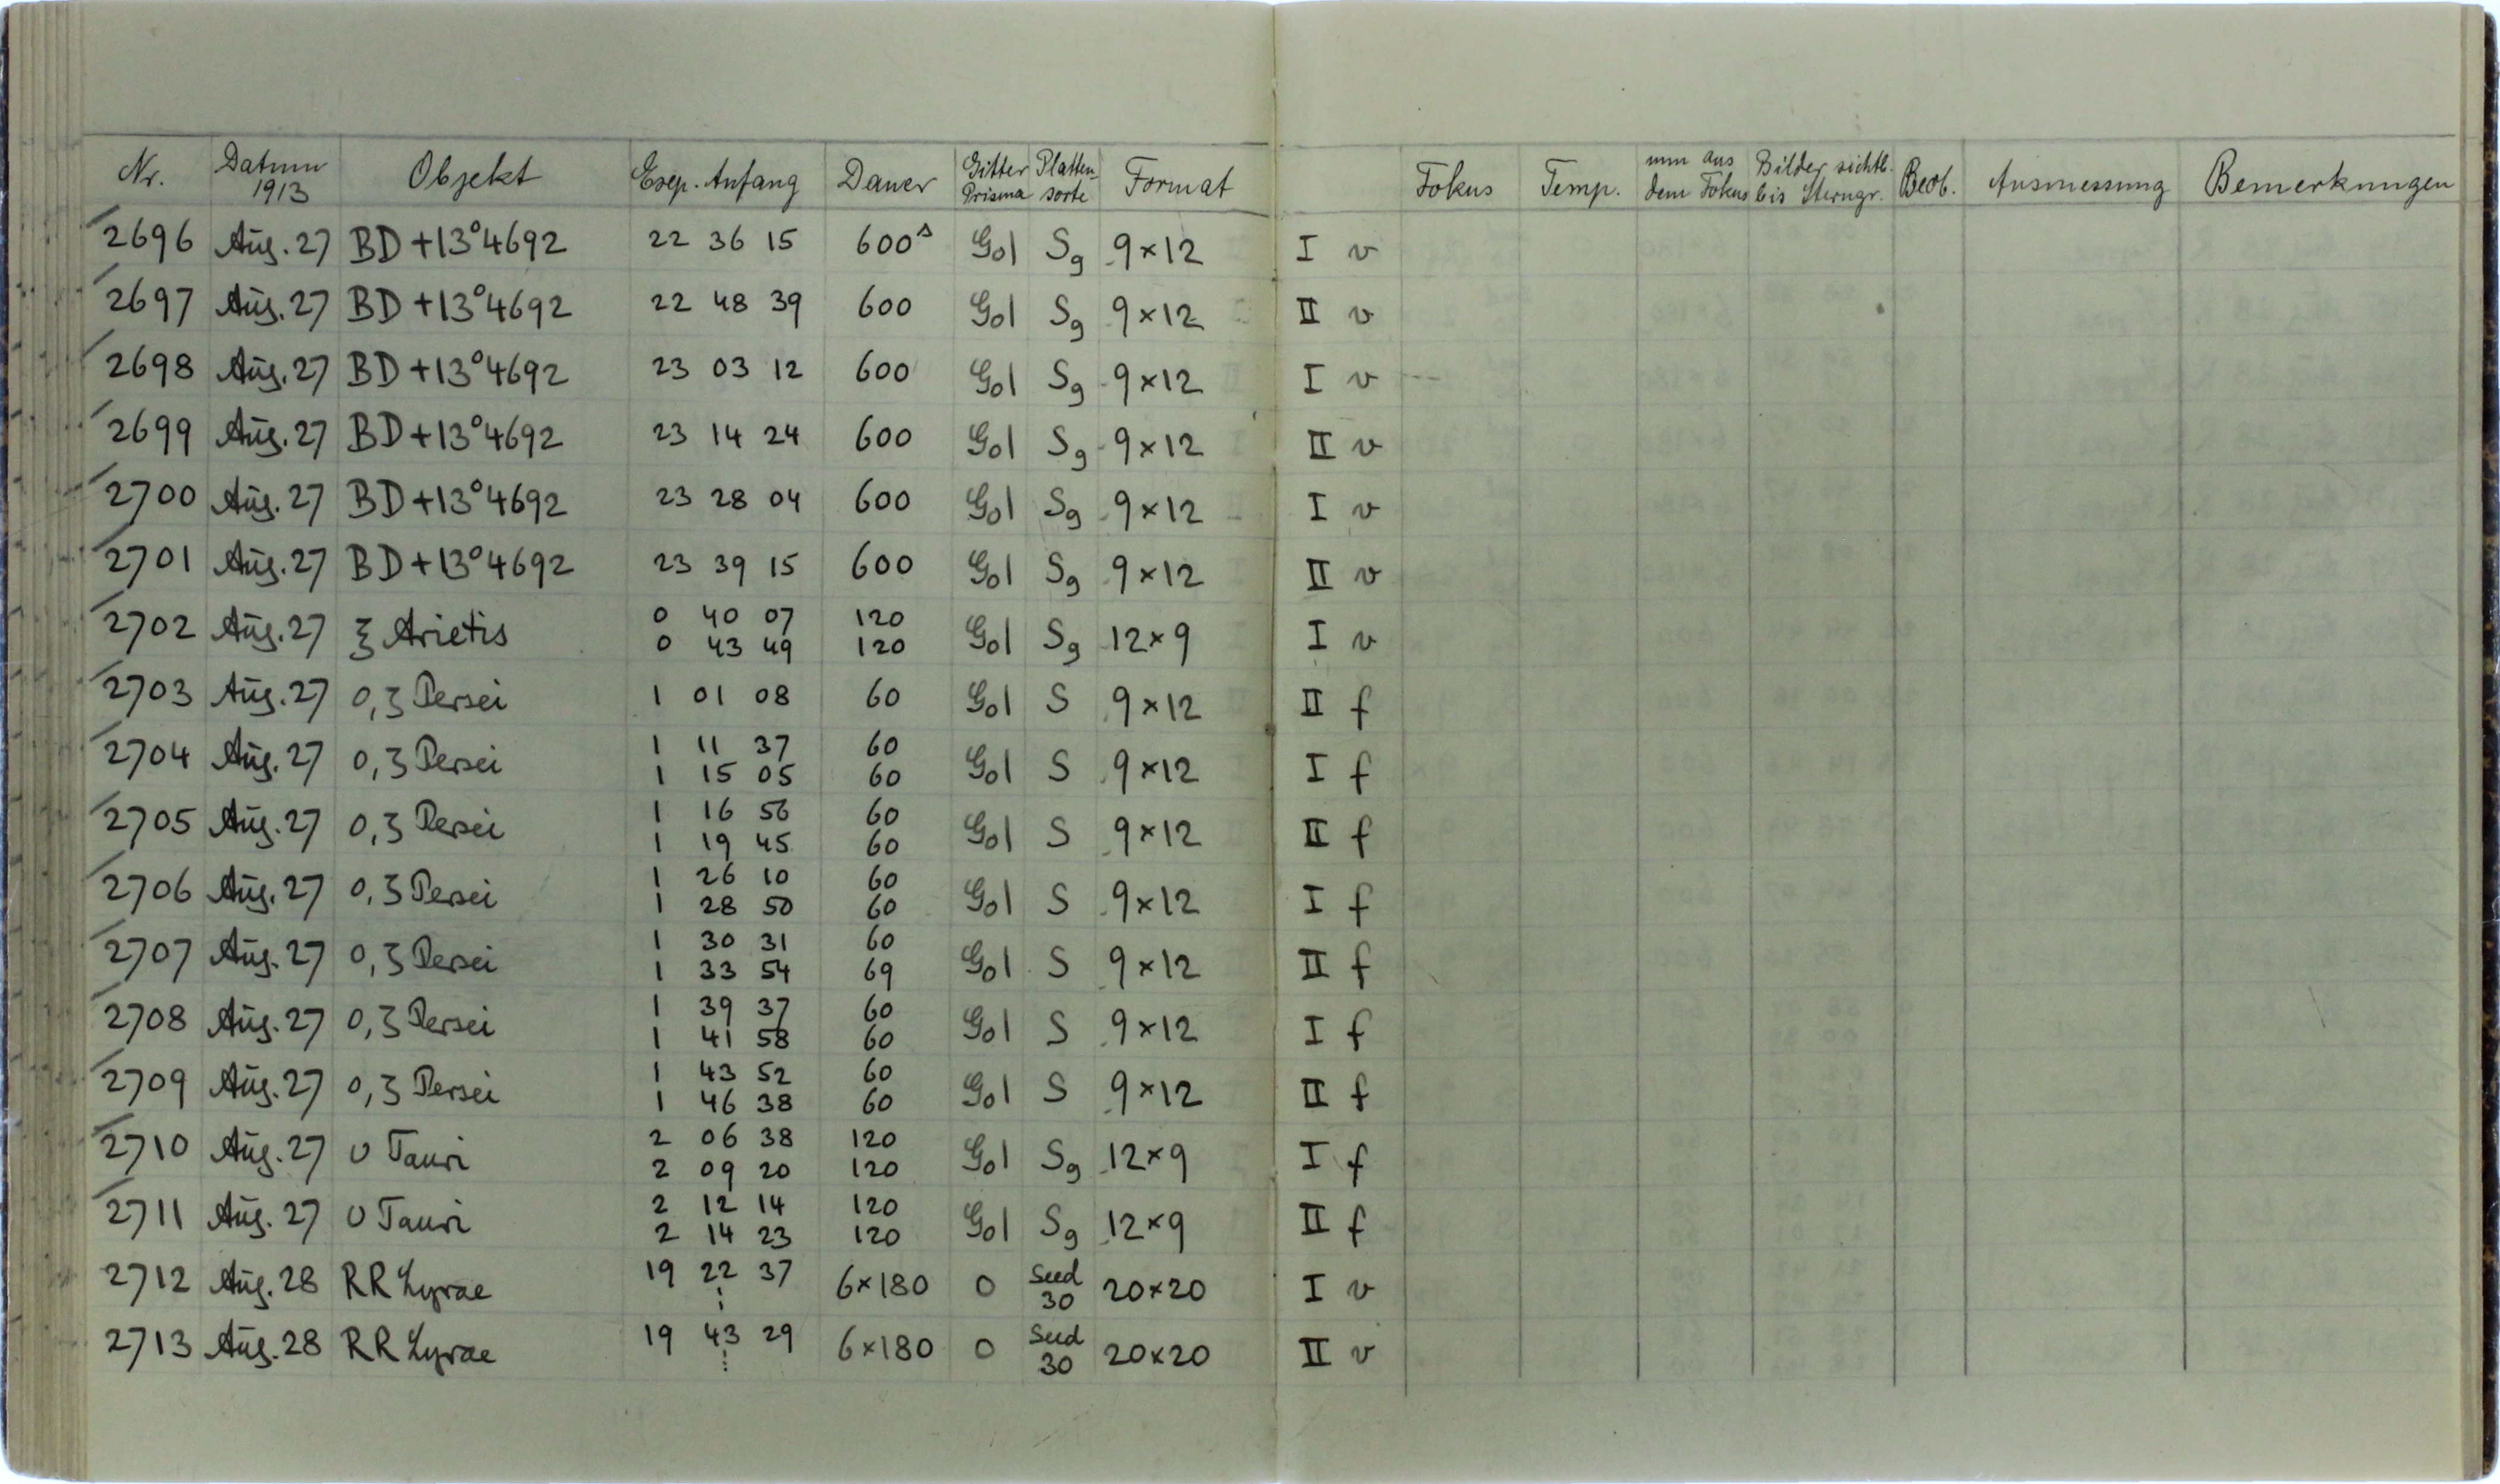 Nr. Datum 1913 Objekt Exp. Anfang Dauer Gitter Prisma Platten-sorte Format Fokus Temp. mm aus dem Fokus Bilder sichtb. bis Sterngr. Beob. Ausmessung Bemerkungen
2696 Aug. 27 BD +13°4692 22 36 15 600ˢ Gol Sg 9×12 I v
2697 Aug. 27 BD +13°4692 22 48 39 600 Gol Sg 9×12 II v
2698 Aug. 27 BD +13°4692 23 03 12 600 Gol Sg 9×12 I v
2699 Aug. 27 BD +13°4692 23 14 24 600 Gol Sg 9×12 II v
2700 Aug. 27 BD +13°4692 23 28 04 600 Gol Sg 9×12 I v
2701 Aug. 27 BD +13°4692 23 39 15 600 Gol Sg 9×12 II v
2702 Aug. 27 ξ Arietis 0 40 07 120 Gol Sg 12×9 I v
0 43 49 120
2703 Aug. 27 o, ζ Persei 1 01 08 60 Gol S 9×12 II f
2704 Aug. 27 o, ζ Persei 1 11 37 60 Gol S 9×12 I f
1 15 05 60
2705 Aug. 27 o, ζ Persei 1 16 56 60 Gol S 9×12 II f
1 19 45 60
2706 Aug. 27 o, ζ Persei 1 26 10 60 Gol S 9×12 I f
1 28 50 60
2707 Aug. 27 o, ζ Persei 1 30 31 60 Gol S 9×12 II f
1 33 54 69
2708 Aug. 27 o, ζ Persei 1 39 37 60 Gol S 9×12 I f
1 41 58 60
2709 Aug. 27 o, ζ Persei 1 43 52 60 Gol S 9×12 II f
1 46 38 60
2710 Aug. 27 υ Tauri 2 06 38 120 Gol Sg 12×9 I f
2 09 20 120
2711 Aug. 27 υ Tauri 2 12 14 120 Gol Sg 12×9 II f
2 14 23 120
2712 Aug. 28 RR Lyrae 19 22 37 6×180 0 Seed 30 20×20 I v
⋮
2713 Aug. 28 RR Lyrae 19 43 29 6×180 0 Seed 30 20×20 II v
⋮